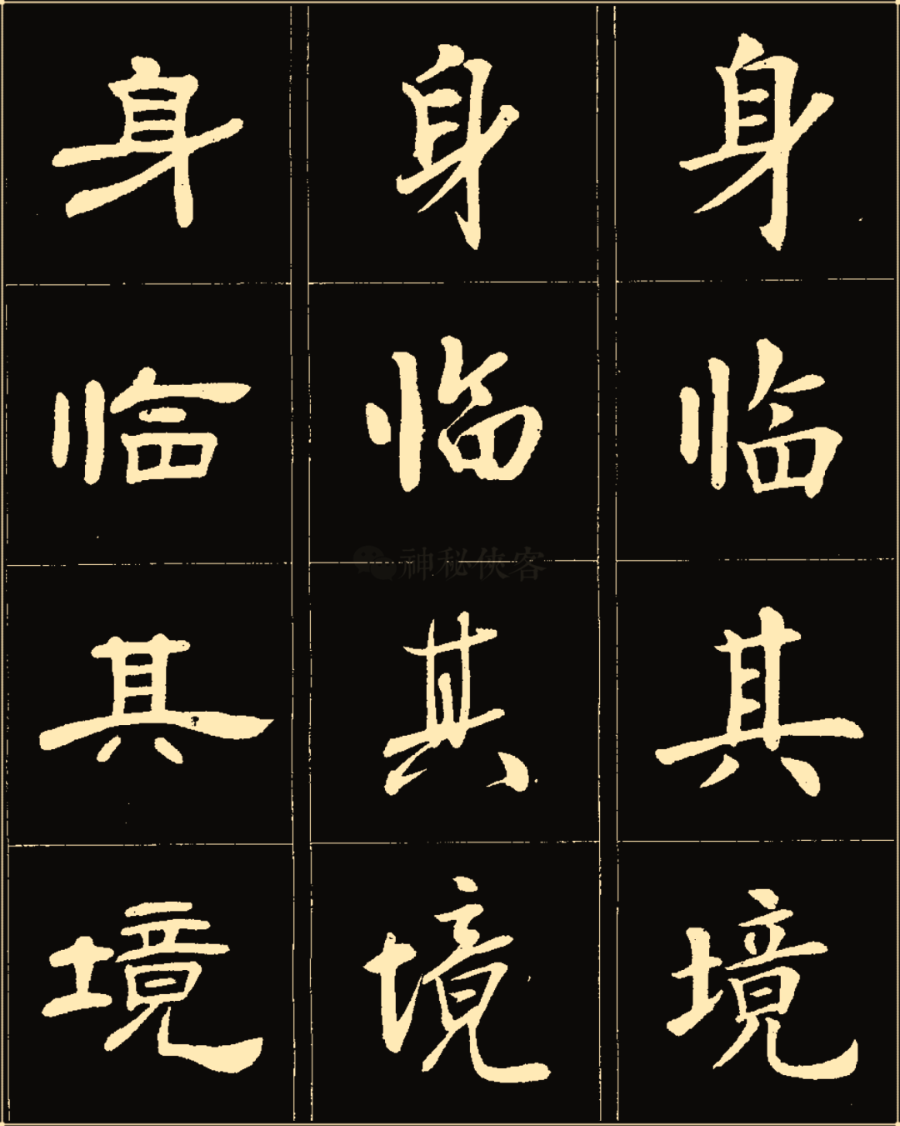 身 身 身
临 临 临
其 其 其
境 境 境
神秘侠客